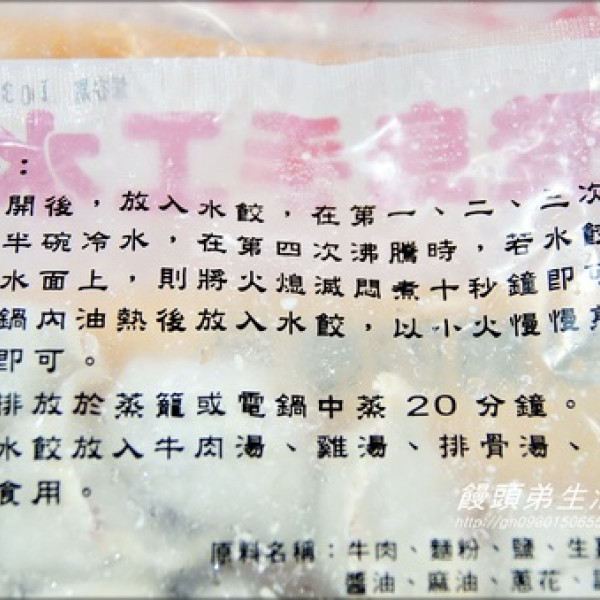 ：
開後，放入水餃，在第一、二、三次
半碗冷水，在第四次沸騰時，若水餃
水面上，則將火熄滅悶煮十秒鐘即可
鍋內油熱後放入水餃，以小火慢慢煎
即可。
排放於蒸籠或電鍋中蒸 20 分鐘。
水餃放入牛肉湯、雞湯、排骨湯、
食用。
饅頭弟生活
原料名稱：牛肉、麵粉、鹽、生薑
醬油、麻油、蔥花、